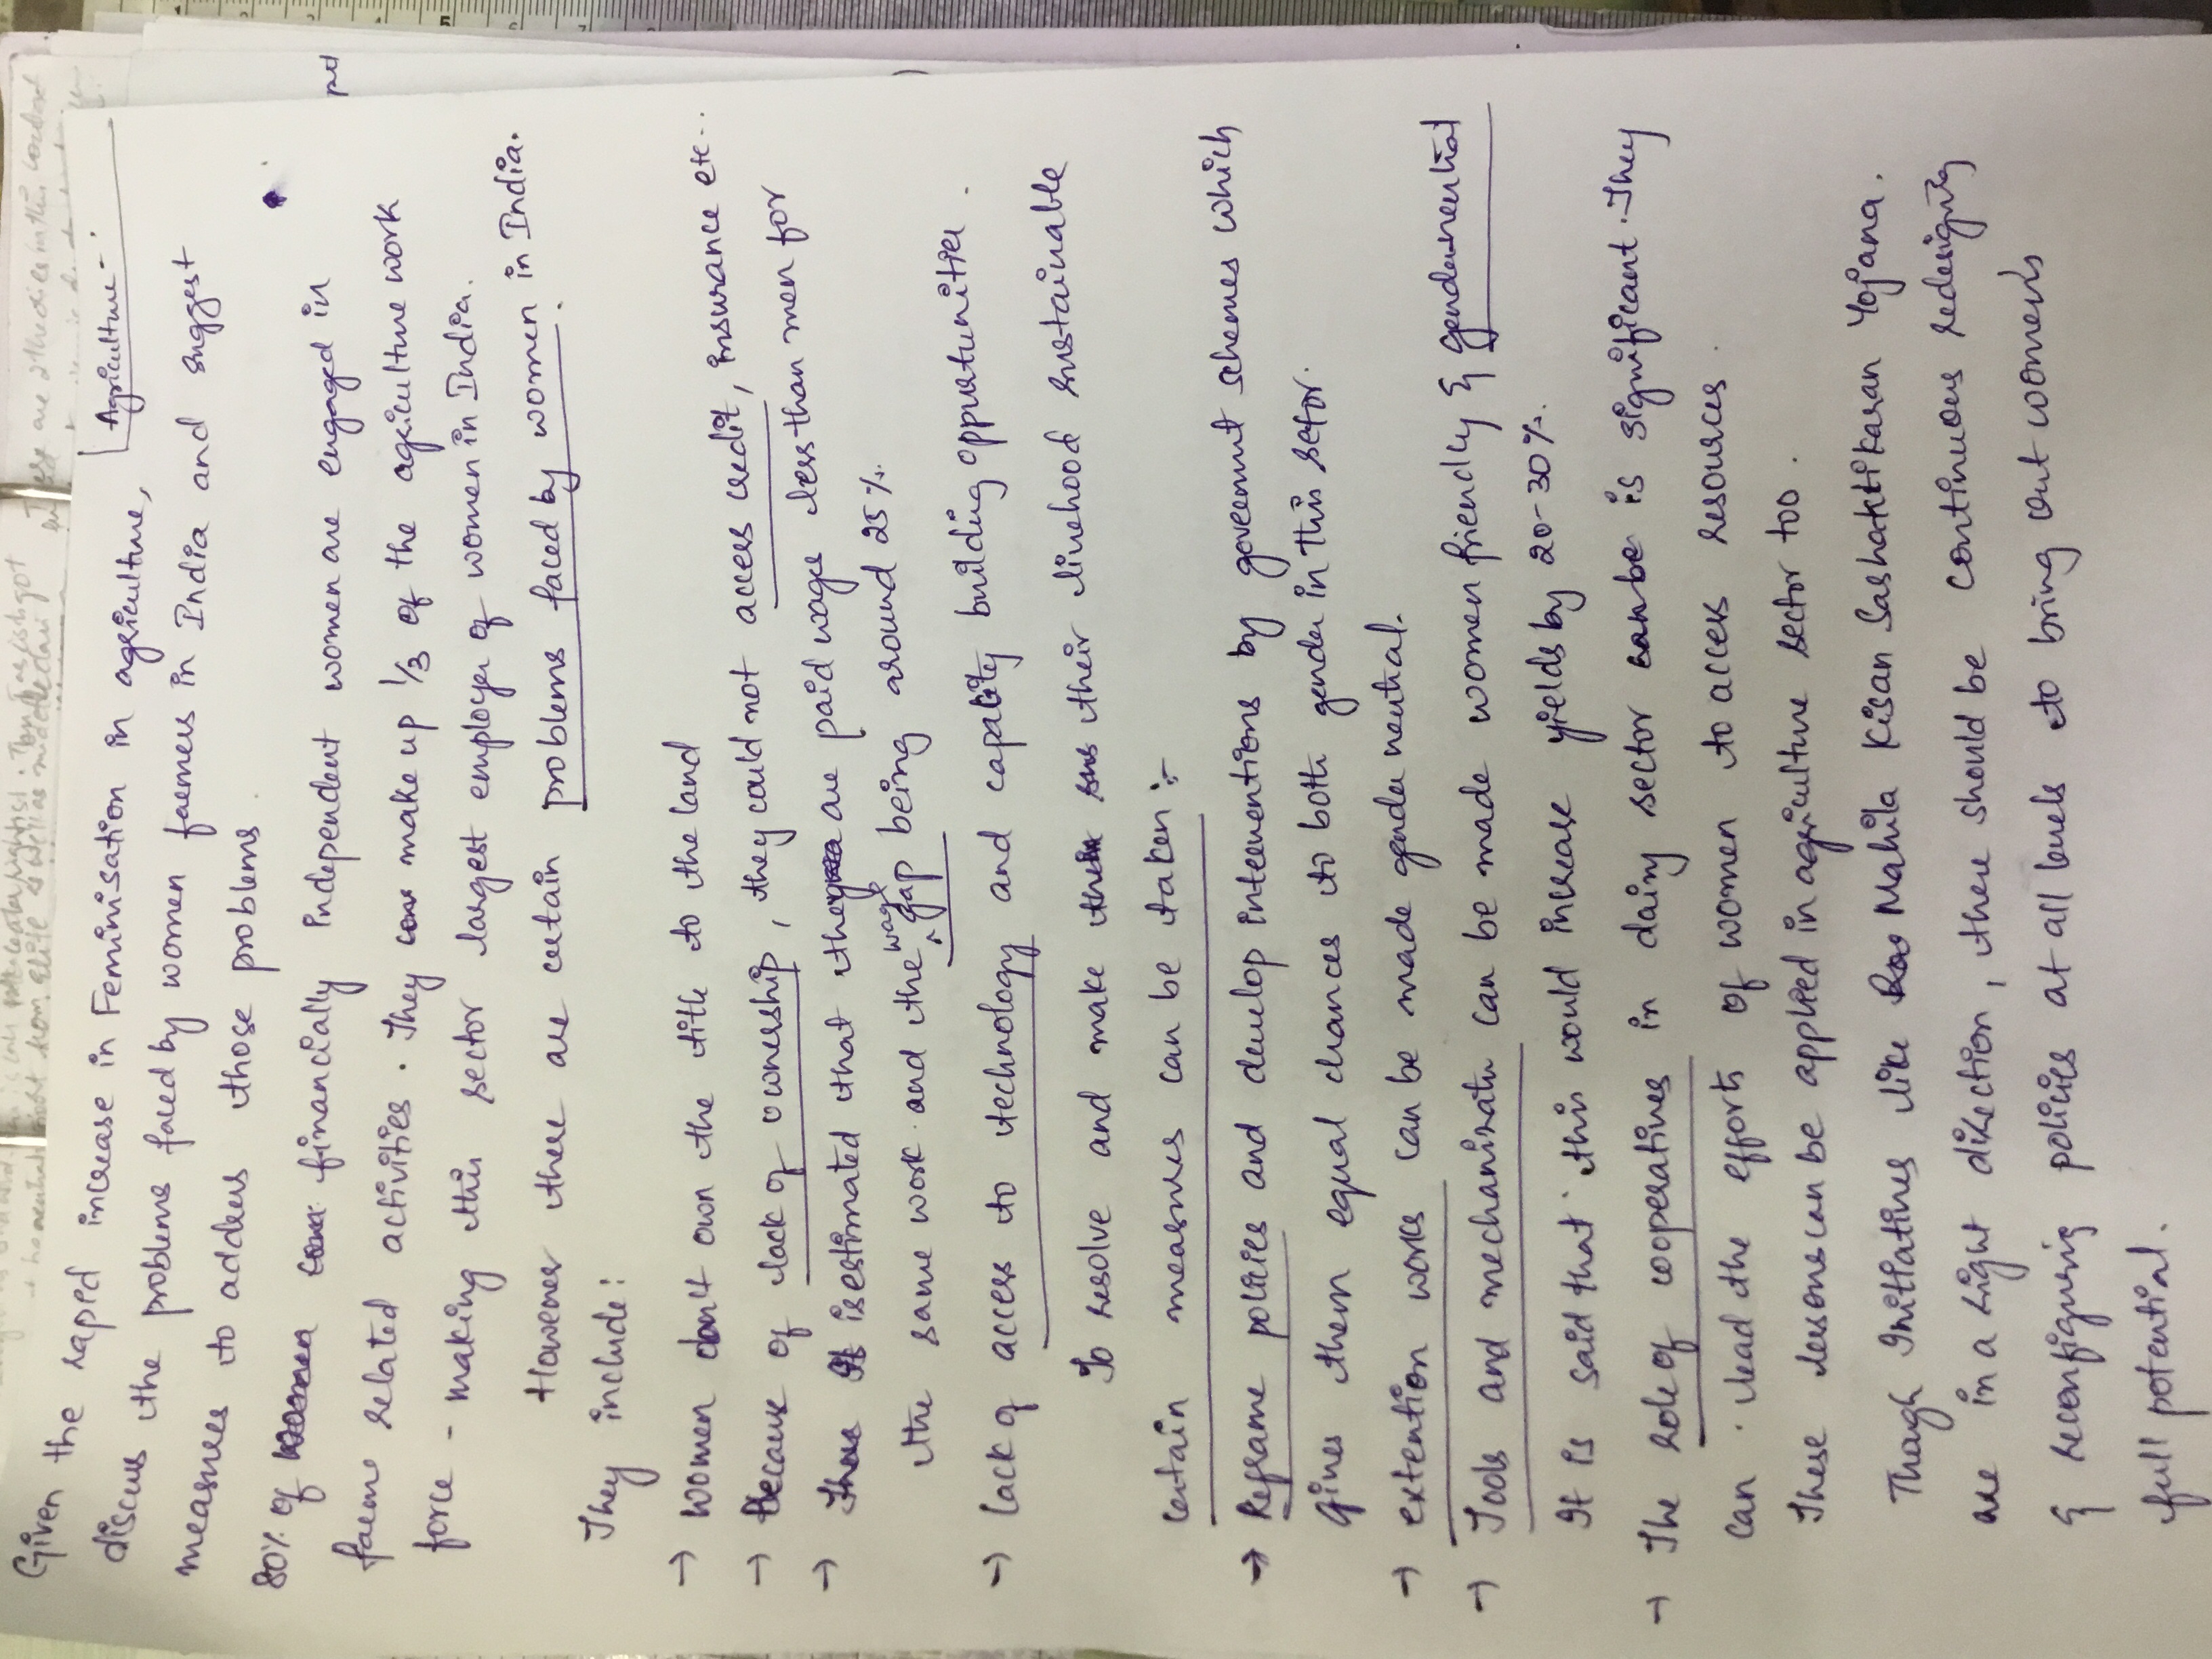 Agriculture:-
Given the rapid increase in Feminisation in agriculture,
discuss the problems faced by women farmers in India and suggest
measures to address those problems.
80% of financially independent women are engaged in
farm related activities. They make up 1/3 of the agriculture work
force - making this sector largest employer of women in India.
However there are certain problems faced by women in India.
They include:
→ women don't own the title to the land
→ because of lack of ownership, they could not access credit, insurance etc..
→ It is estimated that they are paid wages less than men for
the same work and the wage gap being around 25%.
→ lack of access to technology and capability building oppurtunities.
To resolve and make their livehood sustainable
certain measures can be taken :-
→ Reframe policies and develop interventions by goverment schemes which
gives them equal chances to both gender in this sector.
→ extention works can be made gender neutral.
→ Tools and mechanisatn can be made women friendly &
It is said that this would increase yields by 20-30%.
→ The role of cooperatives in dairy sector is significant. They
can lead the efforts of women to access resources.
These lessons can be applied in agriculture sector too.
Though Initiatives like Mahila Kisan Sashaktikaran Yojana.
are in a right direction, there should be continuous redesigning
& reconfiguring policies at all levels to bring out women's
full potential.